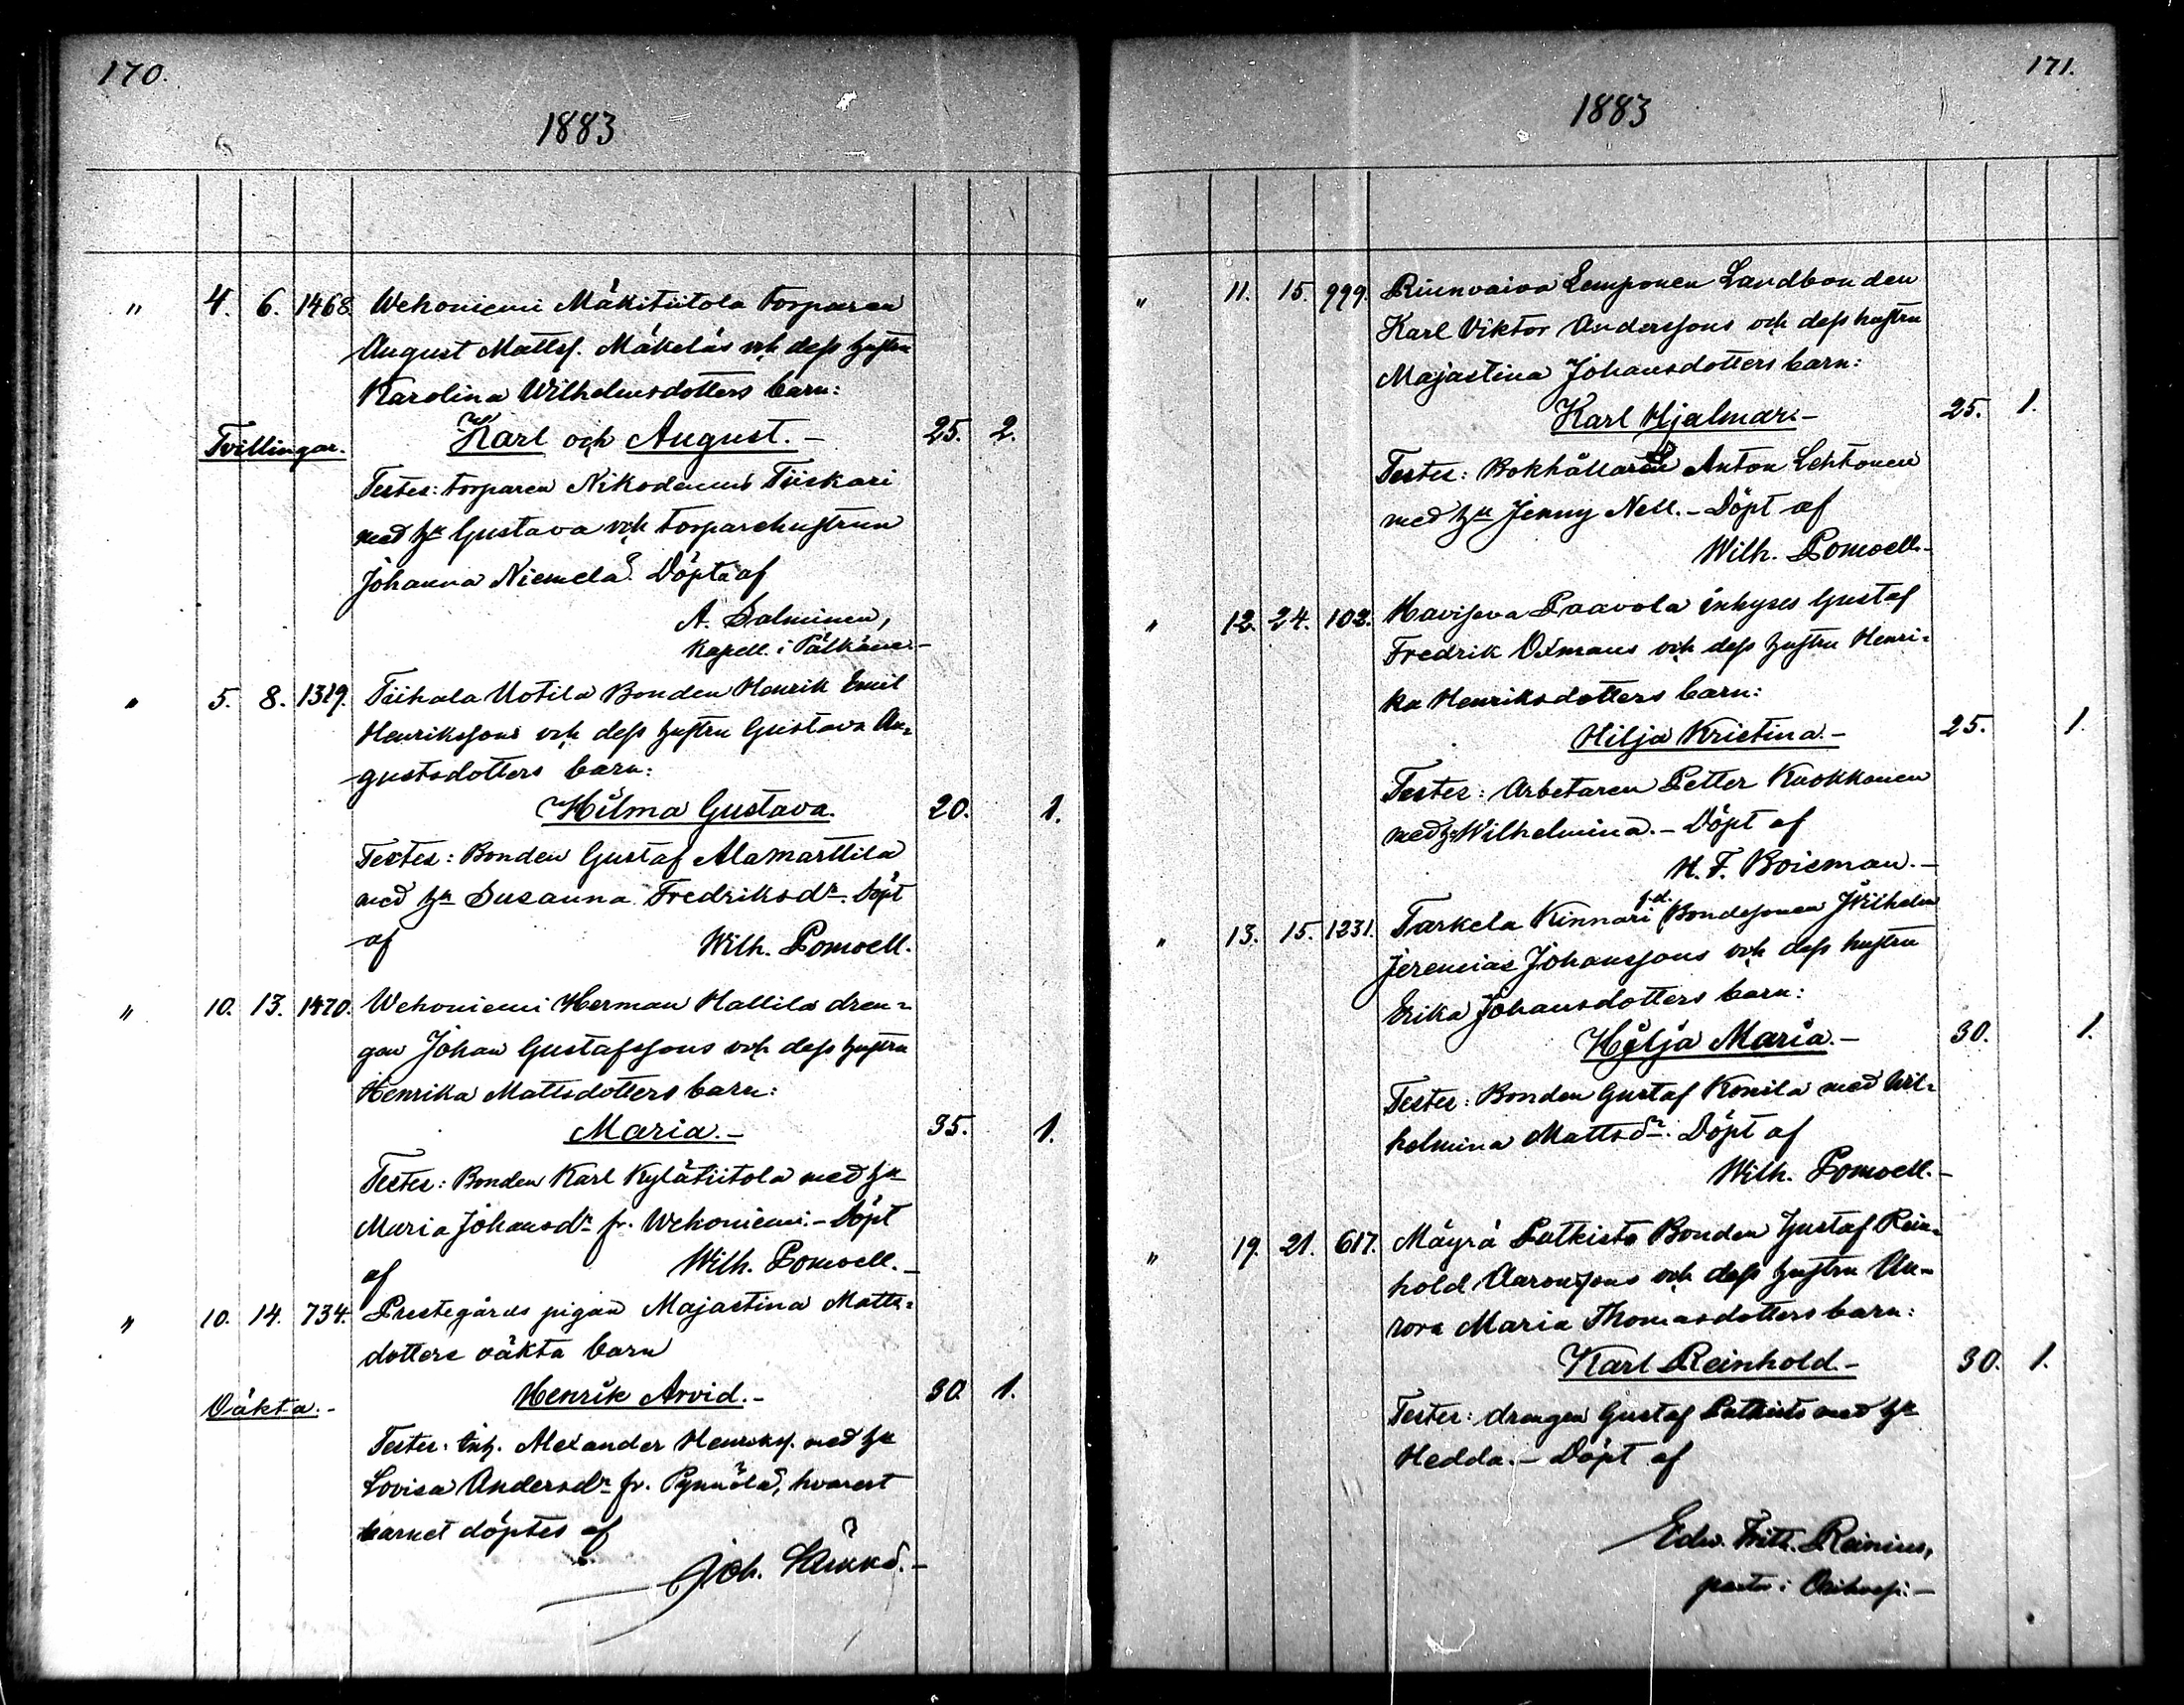 170.
1883
" 4. 6. 1468. Wehoniemi Mäkitiitola torparen
August Mattsf. Mäkeläs och dess hustru
Karolina Wilhelmsdotters barn:
Tvillingar. Karl och August. — 25. 2.
Testes: torparen Nikodemus Tiiskari
med hu Gustava och torparehustrun
Johanna Niemelä. Döpta af
A. Salminen,
Kapell. i Pälkäne. —
" 5. 8. 1319. Tiihala Uotila Bonden Henrik Emil
Henrikssons och dess hustru Gustava Au-
gustsdotters barn:
Hilma Gustava. 20. 1.
Testes: Bonden Gustaf Alamarttila
med hu Susanna Fredriksdr. Döpt
af Wilh. Pomoell.
" 10. 13. 1470. Wehoniemi Herman Hallila dren-
gen Johan Gustafssons och dess hustru
Henrika Mattsdotters barn:
Maria. — 35. 1.
Testes: Bonden Karl Kylätiitola med hu
Maria Johansdr fr. Wehoniemi. — Döpt
af Wilh. Pomoell. —
" 10. 14. 734. Prestegårds pigan Majastina Matts-
dotters oäkta barn
Oäkta. — Henrik Arvid. — 30. 1.
Testes: Inh. Alexander Henriksf. med hu
Lovisa Andersdr fr. Pynnölä, hvarest
barnet döptes af
Joh.
171.
1883
" 11. 15. 999. Riunvaiva Lemponen Landbonden
Karl Viktor Anderssons och dess hustru
Majastina Johansdotters barn:
Karl Hjalmar. — 25. 1.
Testes: Bokhållaren Anton Lehtonen
med hu Jenny Nell. — Döpt af
Wilh. Pomoell. —
" 12. 24. 102. Haviseva Paavola inhyses Gustaf
Fredrik Oxmans och dess hustru Henri-
ka Henriksdotters barn:
Hilja Kristina. — 25. 1.
Testes: Arbetaren Petter Kuokkanen
med hu Wilhelmina. — Döpt af
H. F. Boisman. —
" 13. 15. 1231. Tarkela Kinnari f.d. Bondesonen Wilhelm
Jeremias Johanssons och dess hustru
Erika Johansdotters barn:
Hilja Maria. — 30. 1.
Testes: Bonden Gustaf Konila med Wil-
helmina Mattsdr. Döpt af
Wilh. Pomoell. —
" 19. 21. 617. Mäyrä Putkisto Bonden Gustaf Rein-
hold Aaronssons och dess hustru Au-
rora Maria Thomasdotters barn:
Karl Reinhold — 30. 1.
Testes: drengen Gustaf Putkisto med hu
Hedda. — Döpt af
Edw. Frith. Reinius,
pastor i Orihvesi. —